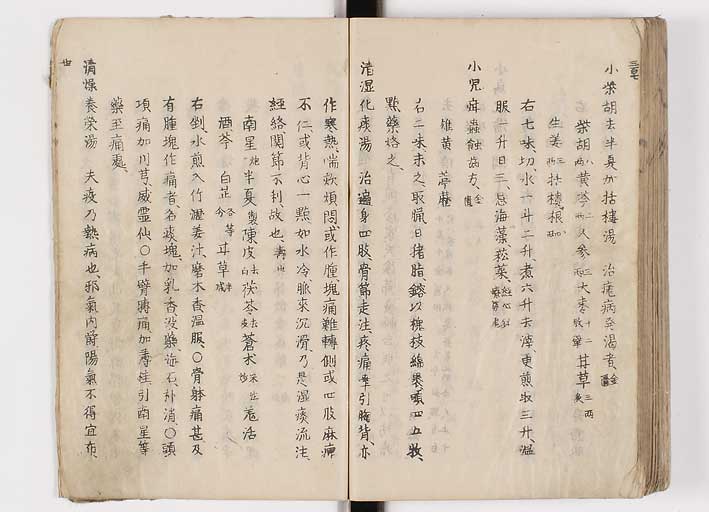 小柴胡去半夏加括樓湯 治瘧病発渇者 金匱
柴胡 八両 黄芩 二両 人参 三両 大棗 十二枚擘 甘草 三両
生姜 三両 括樓根
右七味切水一斗二升煮六升去滓更煎取三升温
服一升日三忌海藻菘菜
小児疳蟲蝕歯方 金匱
雄黄 葶藶
右二味末之取臘日猪脂鎔以槐枝綿裹頭四五枚
點藥烙之
清湿化痰湯 治遍身四肢骨節走注疼痛牽引胸背亦
作寒熱喘欬煩悶或作腫塊痛難轉側或四肢麻痺
不仁或背心一點如水冷脉來沉滑乃是湿痰流注
經絡関節不利故也
南星 炮 半夏 製 陳皮 去白 茯苓 去皮 蒼朮 羗活
酒芩 白芷 各等分 甘草 減半
右剉水煎入竹瀝姜汁磨木香温服〇骨躰痛甚及
有腫塊作痛者名痰塊加乳香没藥海石朴消〇頭
項痛加川芎威霊仙〇手臂膊痛加薄桂引南星等
藥至痛處
滴燥養榮湯 夫疫乃熱病也邪氣内欝陽氣不得宣布